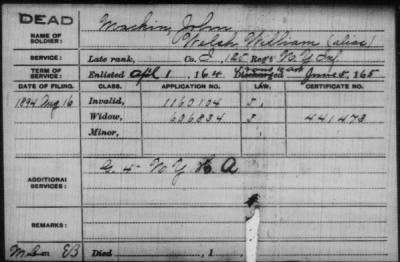 DEAD
NAME OF SOLDIER: Mackin, John
Welch William (alias)
SERVICE: Late rank, Co. I, 125 Reg't N.Y. Inf
TERM OF SERVICE: Enlisted Apl 1, 1864 Discharged June 5, 1865
DATE OF FILING. CLASS. APPLICATION NO. LAW. CERTIFICATE NO.
1894 Aug 16 Invalid, 1160104
Widow, 606834 441473
Minor,
ADDITIONAL SERVICES: G. 4 N Y H A
REMARKS:
Died , 1 ,